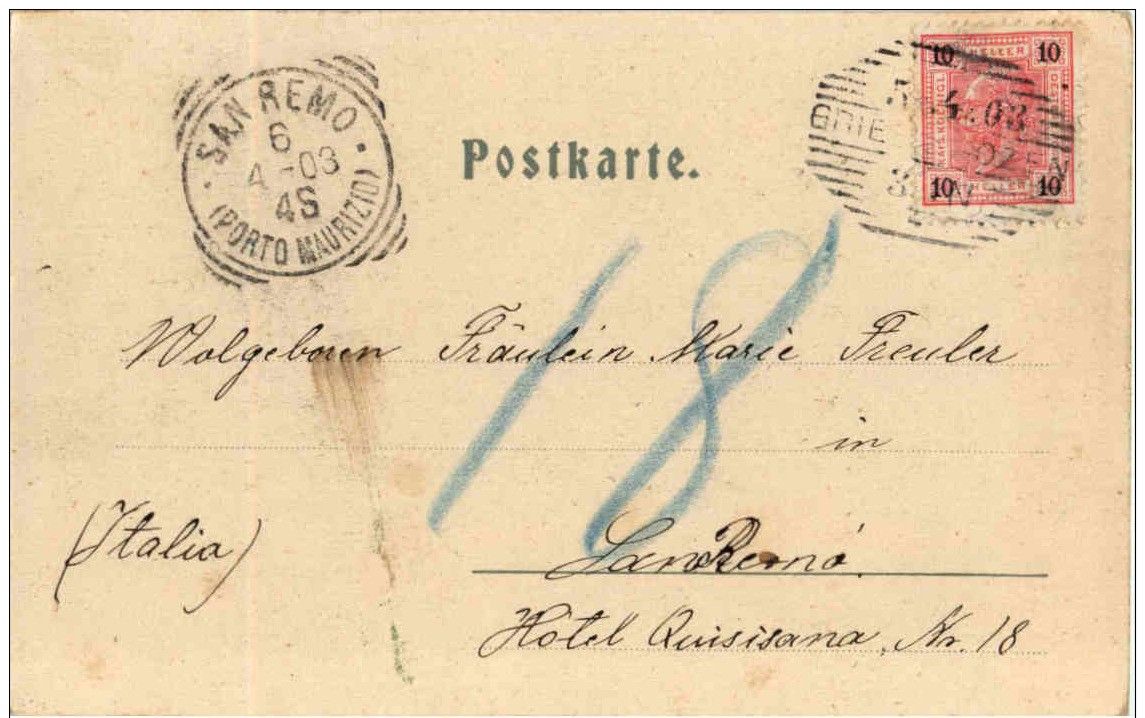 SAN REMO
6
4-03
4S
(PORTO MAURIZIO)
Postkarte.
10 HELLER 10
10 HELLER 10
03
18
Wolgeboren Fräulein Marie Freuler
in
(Italia)
San Remó.
Hôtel Quisisana, Nr. 18